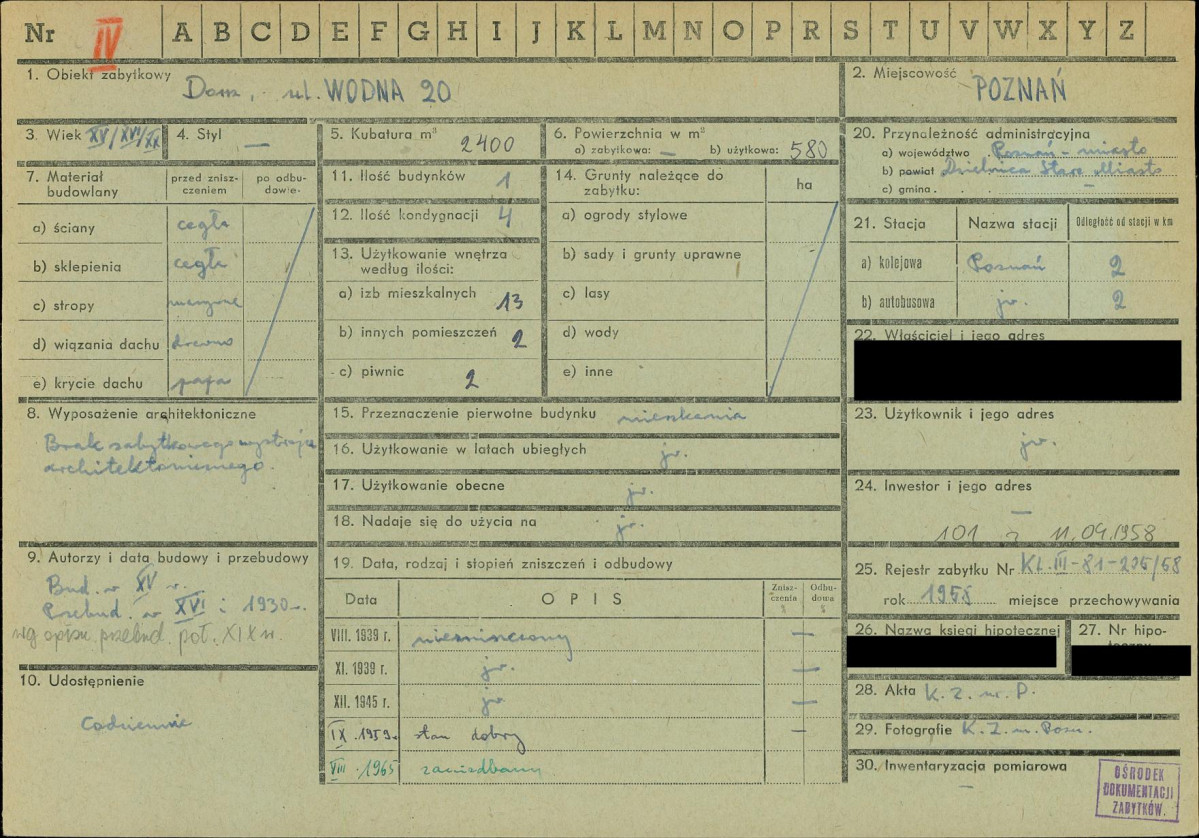 Nr IV A B C D E F G H I J K L M N O P R S T U V W X Y Z
1. Obiekt zabytkowy Dom, ul. WODNA 20
2. Miejscowość POZNAŃ
3. Wiek XV/XVI/XX
4. Styl —
5. Kubatura m³ 2400
6. Powierzchnia w m²
a) zabytkowa: — b) użytkowa: 580
7. Materiał budowlany
przed znisz-
czeniem
po odbu-
dowie
a) ściany cegła
b) sklepienia cegła
c) stropy
d) wiązania dachu drewno
e) krycie dachu papa
8. Wyposażenie architektoniczne
Brak zabytkowego wystroju
architektonicznego.
9. Autorzy i data budowy i przebudowy
Bud. w XV w.
Przebud. w XVI i 1930 r.
wg opisu przebud. poł. XIX w.
10. Udostępnienie
Codziennie
11. Ilość budynków 1
12. Ilość kondygnacji 4
13. Użytkowanie wnętrza
według ilości:
a) izb mieszkalnych 13
b) innych pomieszczeń 2
c) piwnic 2
14. Grunty należące do
zabytku:
ha
a) ogrody stylowe
b) sady i grunty uprawne
c) lasy
d) wody
e) inne
15. Przeznaczenie pierwotne budynku mieszkania
16. Użytkowanie w latach ubiegłych jw.
17. Użytkowanie obecne jw.
18. Nadaje się do użycia na jw.
19. Data, rodzaj i stopień zniszczeń i odbudowy
Data OPIS
Znisz-
czenia
%
Odbu-
dowa
%
VIII. 1939 r. niezniszczony —
XI. 1939 r. jw. —
XII. 1945 r. jw —
IX. 1959 r. stan dobry —
VIII. 1965 zaniedbany
20. Przynależność administracyjna
a) województwo Poznań - miasto
b) powiat Dzielnica Stare Miasto
c) gmina . . . —
21. Stacja Nazwa stacji Odległość od stacji w km
a) kolejowa Poznań 2
b) autobusowa jw. 2
22. Właściciel i jego adres
23. Użytkownik i jego adres
jw.
24. Inwestor i jego adres
—
101 z 11.04.1958
25. Rejestr zabytku Nr KL.III-81-225/58
rok 1958 miejsce przechowywania
26. Nazwa księgi hipotecznej
27. Nr hipo-
28. Akta K. Z. m. P.
29. Fotografie K. Z. m. Pozn.
30. Inwentaryzacja pomiarowa
—
OŚRODEK
DOKUMENTACJI
ZABYTKÓW.